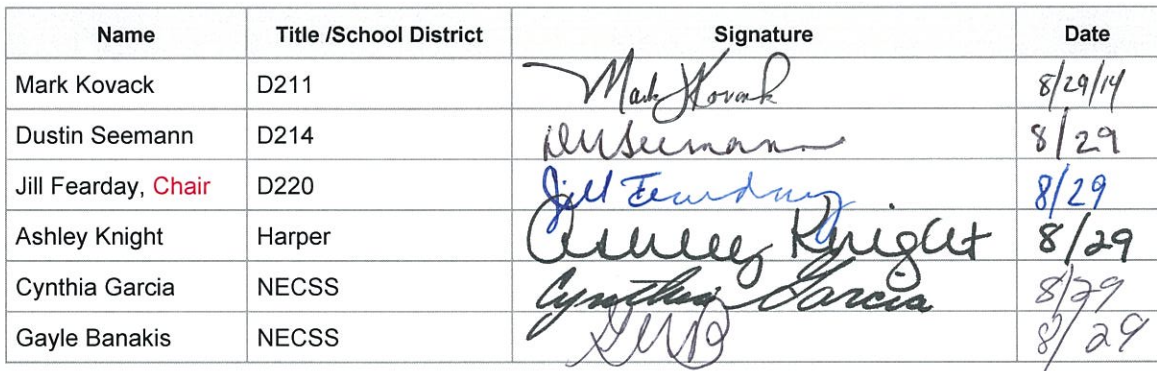 Name Title /School District Signature Date
Mark Kovack D211 Mark Kovack 8/29/14
Dustin Seemann D214 DWSeemann 8/29
Jill Fearday, Chair D220 Jill Fearday 8/29
Ashley Knight Harper Ashley Knight 8/29
Cynthia Garcia NECSS Cynthia Garcia 8/29
Gayle Banakis NECSS 8/29